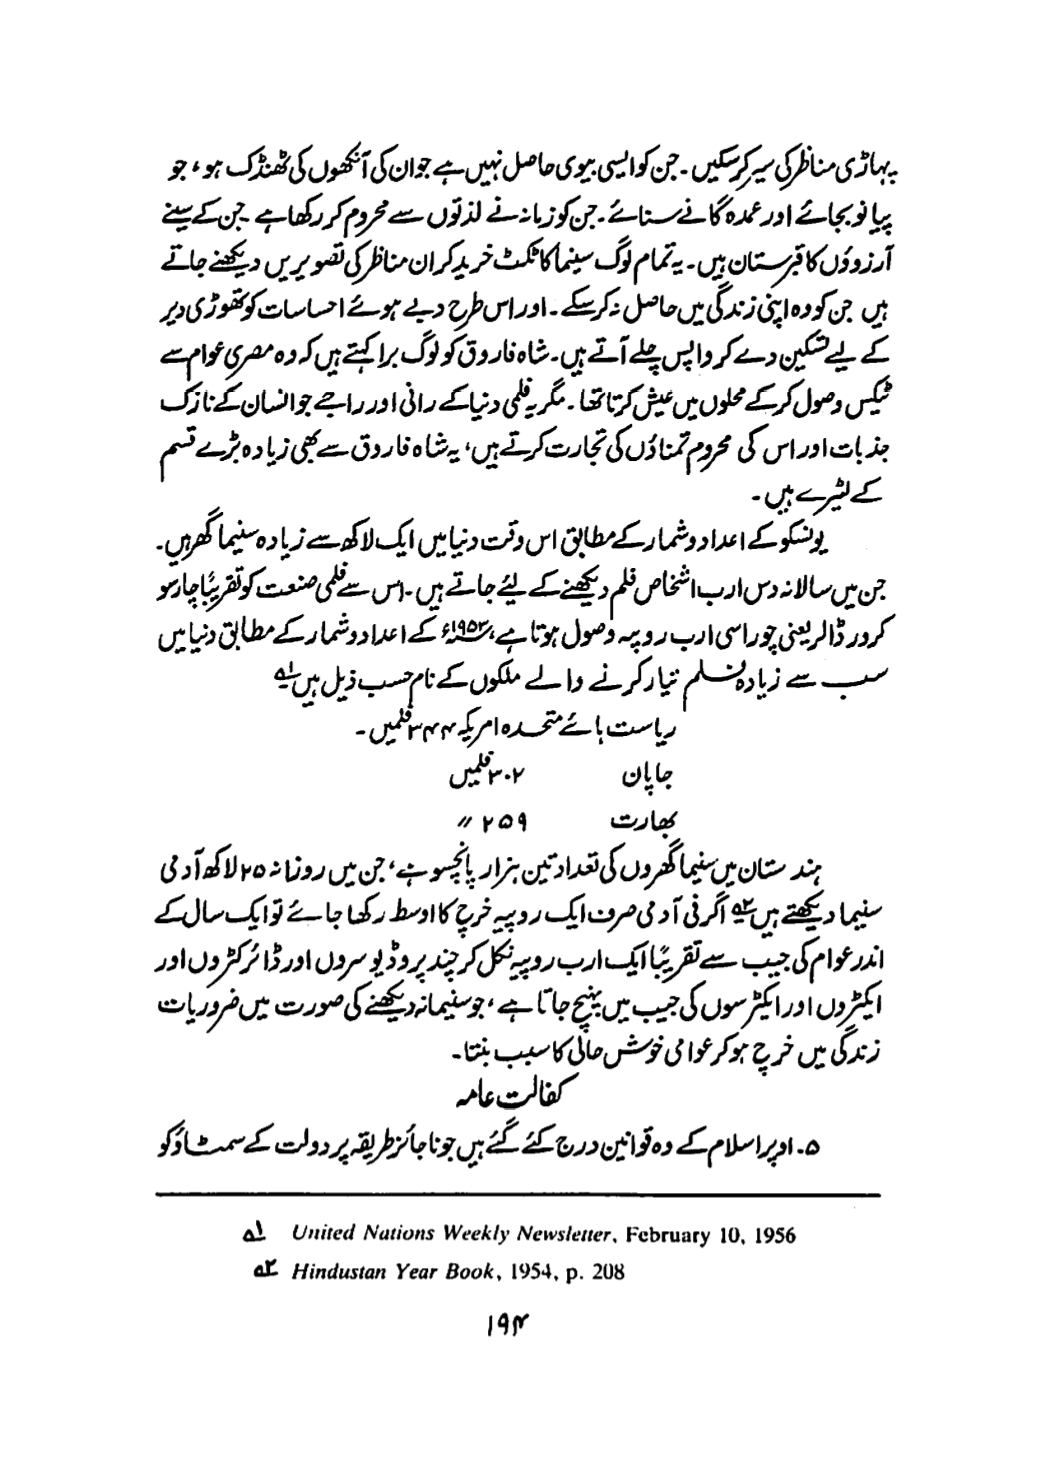 پہاڑی مناظر کی سیر کر سکیں۔ جن کو ایسی بیوی حاصل نہیں ہے جو ان کی آنکھوں کی ٹھنڈک ہو، جو
پیانو بجائے اور عمدہ گانے سنائے۔ جن کو زمانہ نے لذتوں سے محروم کر رکھا ہے۔ جن کے سینے
آرزوؤں کا قبرستان ہیں۔ یہ تمام لوگ سینما کا ٹکٹ خرید کر ان مناظر کی تصویریں دیکھنے جاتے
ہیں جن کو وہ اپنی زندگی میں حاصل نہ کر سکے۔ اور اس طرح دبے ہوئے احساسات کو تھوڑی دیر
کے لیے تسکین دے کر واپس چلے آتے ہیں۔ شاہ فاروق کو لوگ برا کہتے ہیں کہ وہ مصری عوام سے
ٹیکس وصول کر کے محلوں میں عیش کرتا تھا۔ مگر یہ فلمی دنیا کے رانی اور راجے جو انسان کے نازک
جذبات اور اس کی محروم تمناؤں کی تجارت کرتے ہیں، یہ شاہ فاروق سے بھی زیادہ بڑے قسم
کے لٹیرے ہیں۔
یونسکو کے اعداد و شمار کے مطابق اس وقت دنیا میں ایک لاکھ سے زیادہ سنیما گھر ہیں۔
جن میں سالانہ دس ارب اشخاص فلم دیکھنے کے لیئے جاتے ہیں۔ اس سے فلمی صنعت کو تقریباً چار سو
کرور ڈالر یعنی چوراسی ارب روپیہ وصول ہوتا ہے، ۱۹۵۴ء کے اعداد و شمار کے مطابق دنیا میں
سب سے زیادہ فلم تیار کرنے والے ملکوں کے نام حسب ذیل ہیں ۵۱
ریاست ہائے متحدہ امریکہ ۳۴۴ فلمیں۔
جاپان ۳۰۲ فلمیں
بھارت ۲۵۹ //
ہندستان میں سنیما گھروں کی تعداد تین ہزار پانچسو ہے، جن میں روزانہ ۲۵ لاکھ آدمی
سنیما دیکھتے ہیں ۵۲ اگر فی آدمی صرف ایک روپیہ خرچ کا اوسط رکھا جائے تو ایک سال کے
اندر عوام کی جیب سے تقریباً ایک ارب روپیہ نکل کر چند پروڈیوسروں اور ڈائرکٹروں اور
ایکٹروں اور ایکٹرسوں کی جیب میں پہنچ جاتا ہے، جو سنیما نہ دیکھنے کی صورت میں ضروریات
زندگی میں خرچ ہو کر عوامی خوش حالی کا سبب بنتا۔
کفالت عامہ
۵۔ اوپر اسلام کے وہ قوانین درج کئے گئے ہیں جو ناجائز طریقہ پر دولت کے سمٹاؤ کو
۵۱ United Nations Weekly Newsletter, February 10, 1956
۵۲ Hindustan Year Book, 1954, p. 208
۱۹۴